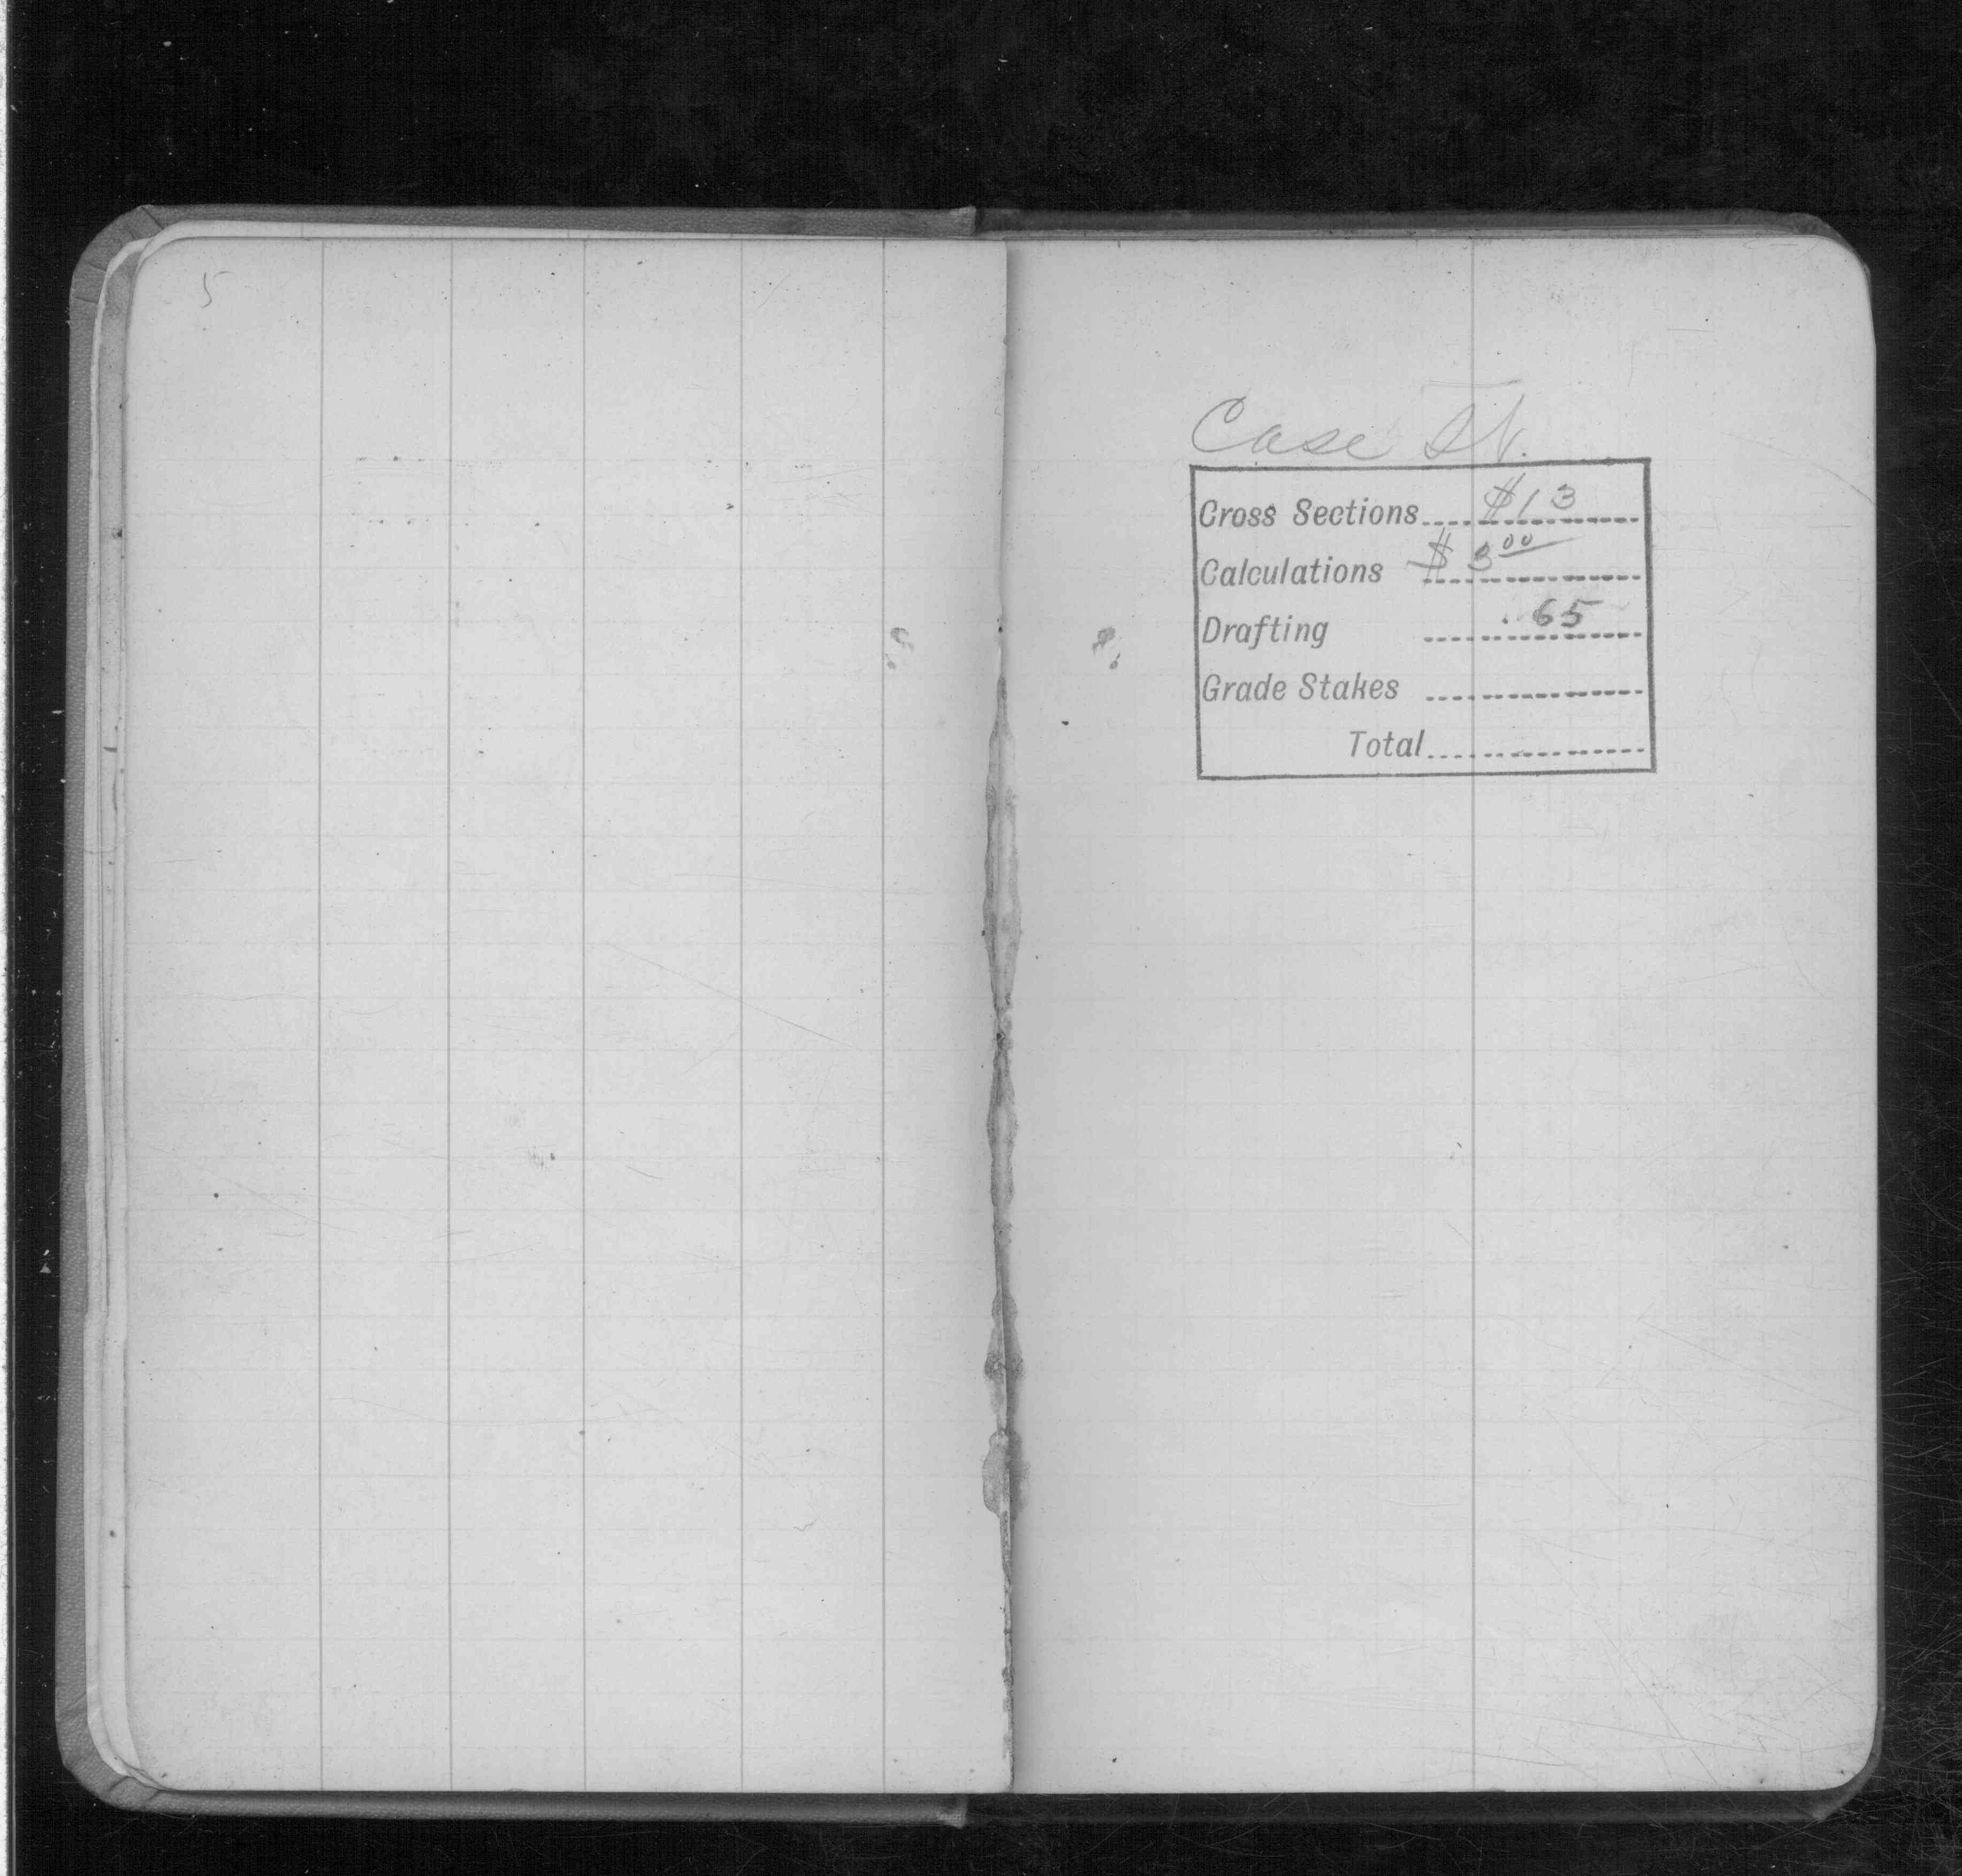 5
Case St.
Cross Sections.... $13
Calculations $3 00
Drafting .65
Grade Stakes
Total